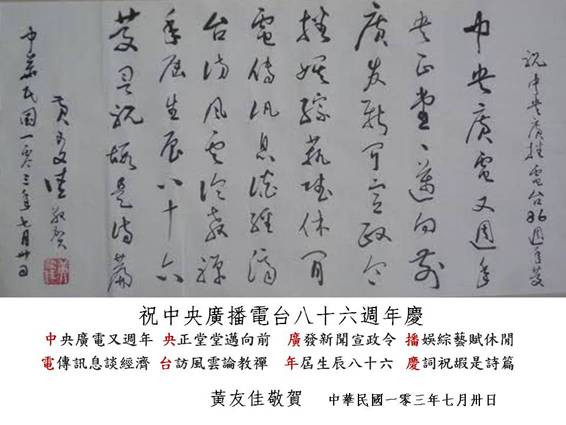 祝中央廣播電台86週年慶
中央廣電又週年
央正堂堂邁向前
廣發新聞宣政令
播娛綜藝賦休閒
電傳訊息談經濟
台訪風雲論教禪
年屆生辰八十六
慶詞祝嘏是詩篇
黃友佳敬賀
中華民國一〇三年七月卅日
祝中央廣播電台八十六週年慶
中央廣電又週年 央正堂堂邁向前 廣發新聞宣政令 播娛綜藝賦休閒
電傳訊息談經濟 台訪風雲論教禪 年屆生辰八十六 慶詞祝嘏是詩篇
黃友佳敬賀 中華民國一零三年七月卅日